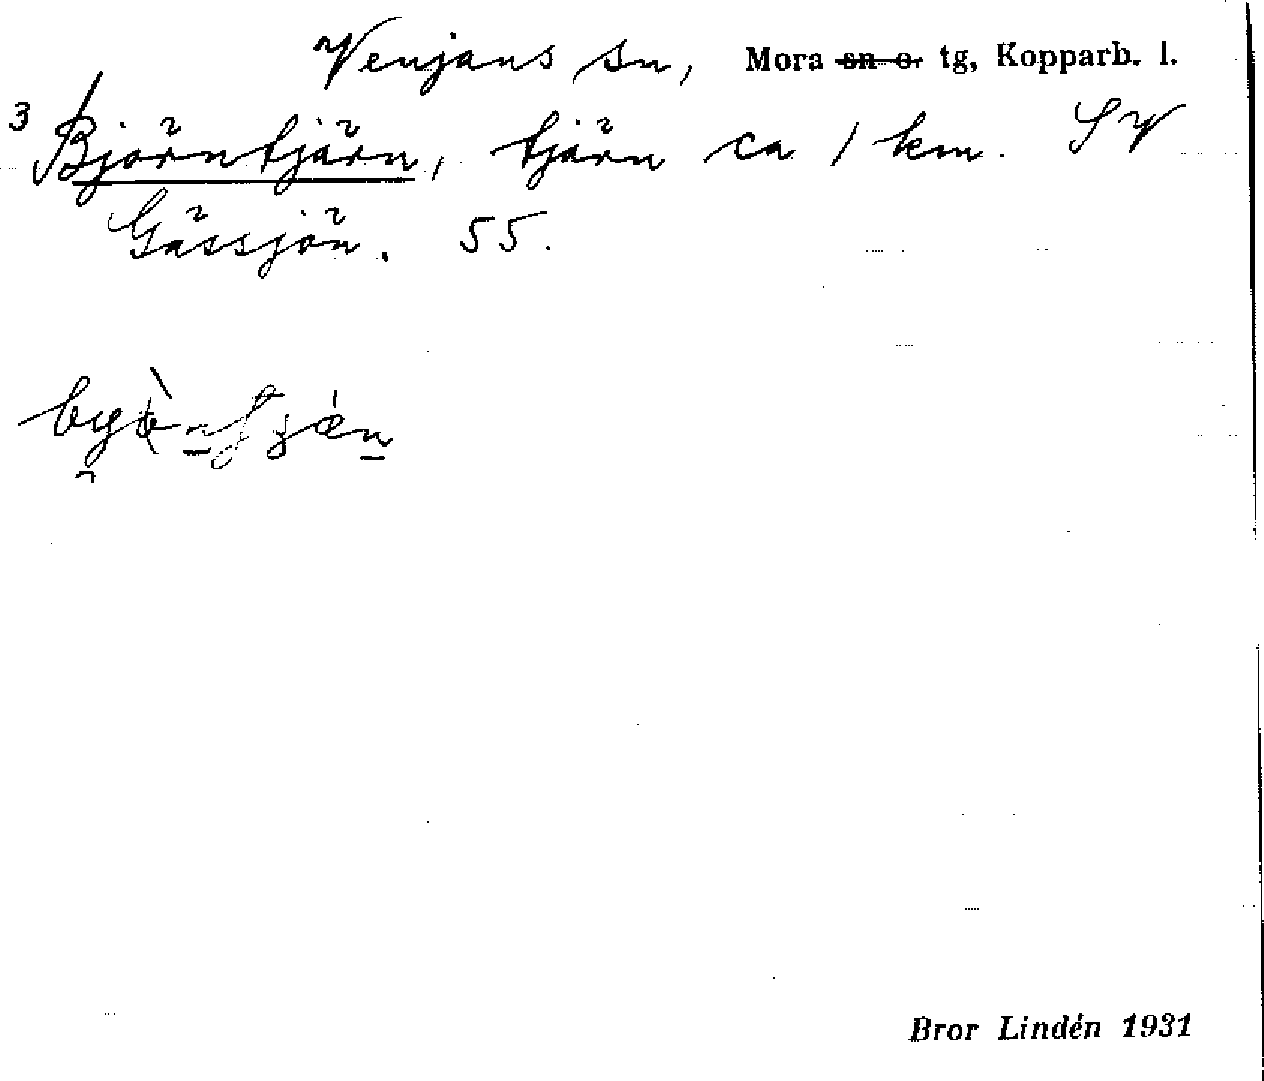 Venjans sn, Mora sn o. tg, Kopparb. l.
3 Björntjärn, tjärn ca 1 km. SV
Gässjön. 55.
Bror Lindén 1931